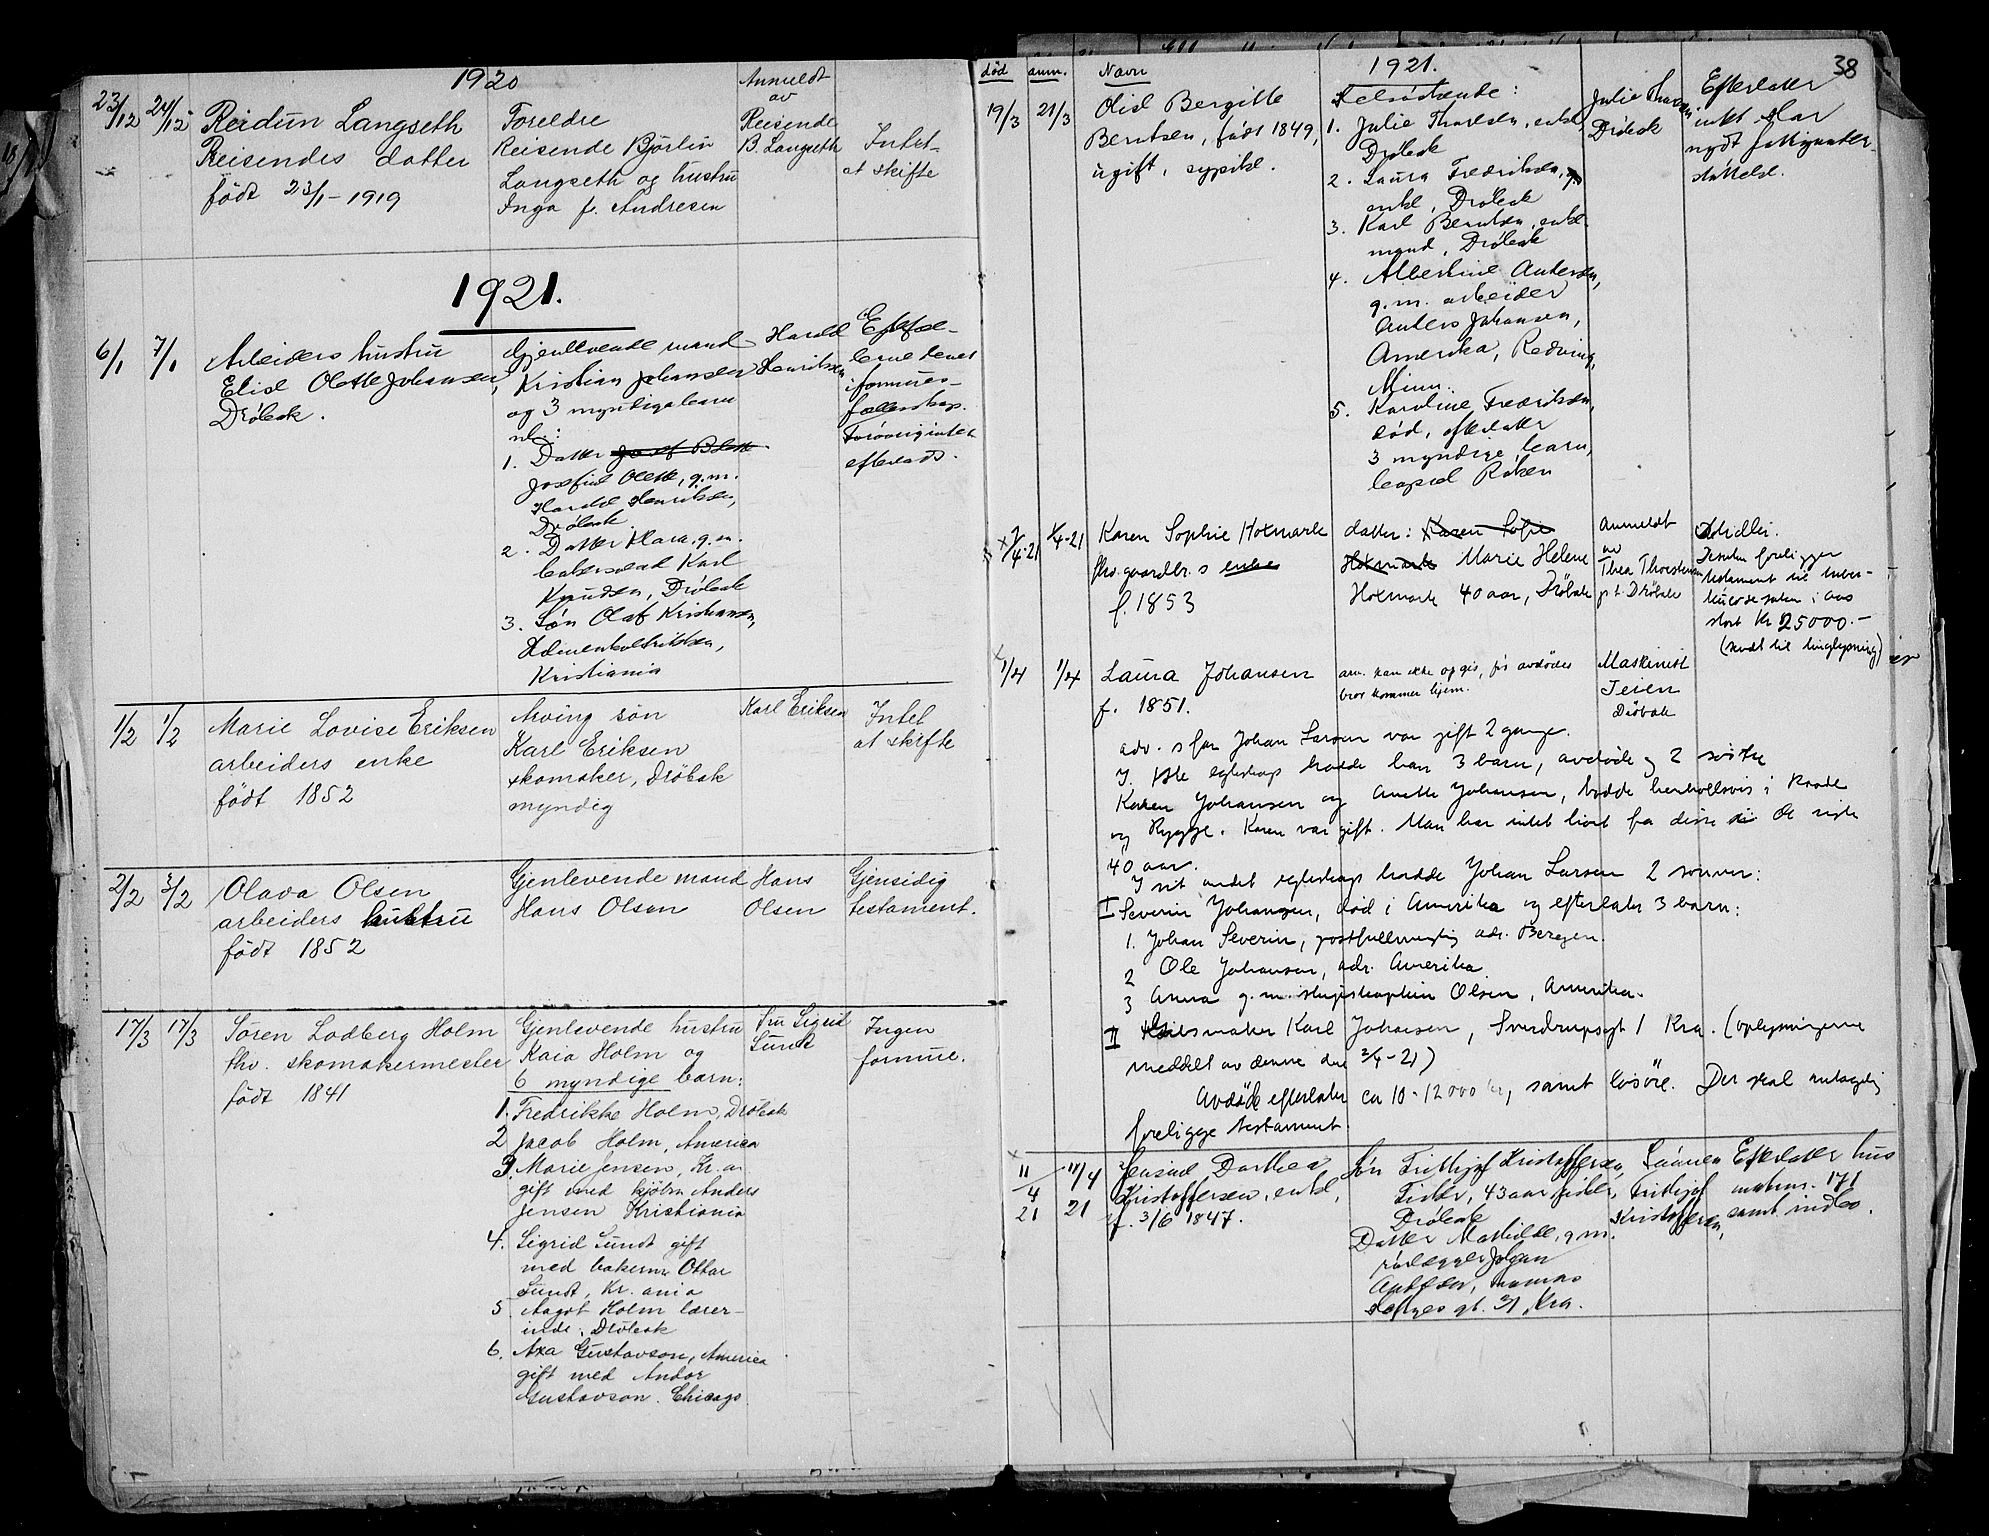 1920
Anmeldt
av
23/12 24/12 Reidun Langseth
Reisendes datter
født 23/1-1919
Foreldre
Reisende Bjørlin
Langseth og hustru
Inga f. Andresen
Reisende
B. Langseth
Intet
at skifte
1921.
6/1 7/1 Arbeiders hustru
Elise Olette Johansen,
Drøbak.
Gjenlevende mand
Kristian Johansen
og 3 myndige barn
nl.:
1. Datter
Josefine Olette, g.m.
Harald Henriksen,
Drøbak
2. Datter Klara, g.m.
Karl
Knudsen, Drøbak
3. Søn Olaf Kristiansen,
Kristiania
Harald
Henriksen
Ektefæl-
lerne levet
i formues-
fællesskap.
Forøvrig intet
efterlatt.
1/2 1/2 Marie Lovise Eriksen
arbeiders enke
født 1852
Arving søn
Karl Eriksen
skomaker, Drøbak
myndig
Karl Eriksen
Intet
at skifte
2/2 3/2 Olava Olsen
arbeiders hustru
født 1852
Gjenlevende mand
Hans Olsen
Hans
Olsen
Gjensidig
testament.
17/3 17/3 Søren Lodberg Holm
fhv. skomakermester
født 1841
Gjenlevende hustru
Kaia Holm og
6 myndige barn:
1. Fredrikke Holm, Drøbak
2 Jacob Holm, America
3. Marie Jensen, Kr.a.
gift med kjøbm. Anders
Jensen Kristiania
4. Sigrid Sundt gift
med bakerm. Ottar
Sundt, Kr. ania
5 Aagot Holm lærer-
inde, Drøbak
6. Axa Gustavson, America
gift med Andor
Gustavson. Chicago
Fru Sigrid
Sundt
Ingen
formue.
38
død anm. Navn 1921.
19/3 21/3 Olid Bergitte
Berntsen, født 1849,
ugift, sypike.
Følgende:
1. Julie Thoresen, enke,
Drøbak
2. Laura Fredriksen,
enke, Drøbak
3. Karl Berntsen, enke-
mand, Drøbak
4. Albertine Andersen,
g.m. arbeider
Anders Johansen,
Amerika, Redwing,
Minn.
5. Karoline Fredriksen,
død, efterlatter
3 myndige barn,
bopæl Røken
Julie Thoresen
Drøbak
Efterlatter
intet. Har
nydt fattigunder-
støttelse.
4-21 1/4-21 Karen Sophie Holmark
fhv. gaardbr.s enke
f. 1853
datter: Karen Sofie
Holmark Marie Helene
Holmark 40 aar, Drøbak
Anmeldt
av
Thea Thorstensen
p.t. Drøbak
Midler.
foreligger
testament til tuber-
kulosesaken i Aas
stort Kr 25000.-
(sendt til tinglysning)
1/4 1/4 Laura Johansen
f. 1851.
arv. kan ikke opgis, før avdødes
bror kommer hjem.
Maskinist
Teien
Drøbak
adv.s far Johan Larsen var gift 2 gange.
I 1ste egteskap hadde han 3 barn, avdøde og 2 søstre
Karen Johansen og Anette Johansen, bodde henholdsvis i Raade
og Rygge. Karen var gift. Man har intet hørt fra disse de sidste
40 aar.
I sit andet egteskap hadde Johan Larsen 2 sønner:
I Severin Johansen, død i Amerika og efterlater 3 barn:
1. Johan Severin, postfuldmægtig adr. Bergen.
2 Ole Johansen, adr. Amerika.
3 Anna g.m. skipskaptein Olsen, Amerika.
II Karl Johansen, Sverdrupsgt 1 Kra. (oplysningerne
meddelt av denne den 2/4-21)
Avdøde efterlater ca 10-12000 kr, samt løsøre. Der skal antagelig
foreligge testament.
11/4 21 11/4 21 Jensine Dorthea
Kristoffersen, enke,
f. 3/6 1847.
Søn Frithjof Kristoffersen,
Fisker, 43 aar,
Drøbak
Datter Mathilde, g.m.
rørlægger Johan
gt. 31, Kra.
Sønnen
Frithjof
Kristoffersen,
Efterlatter hus
matrnr. 171
samt indbo.